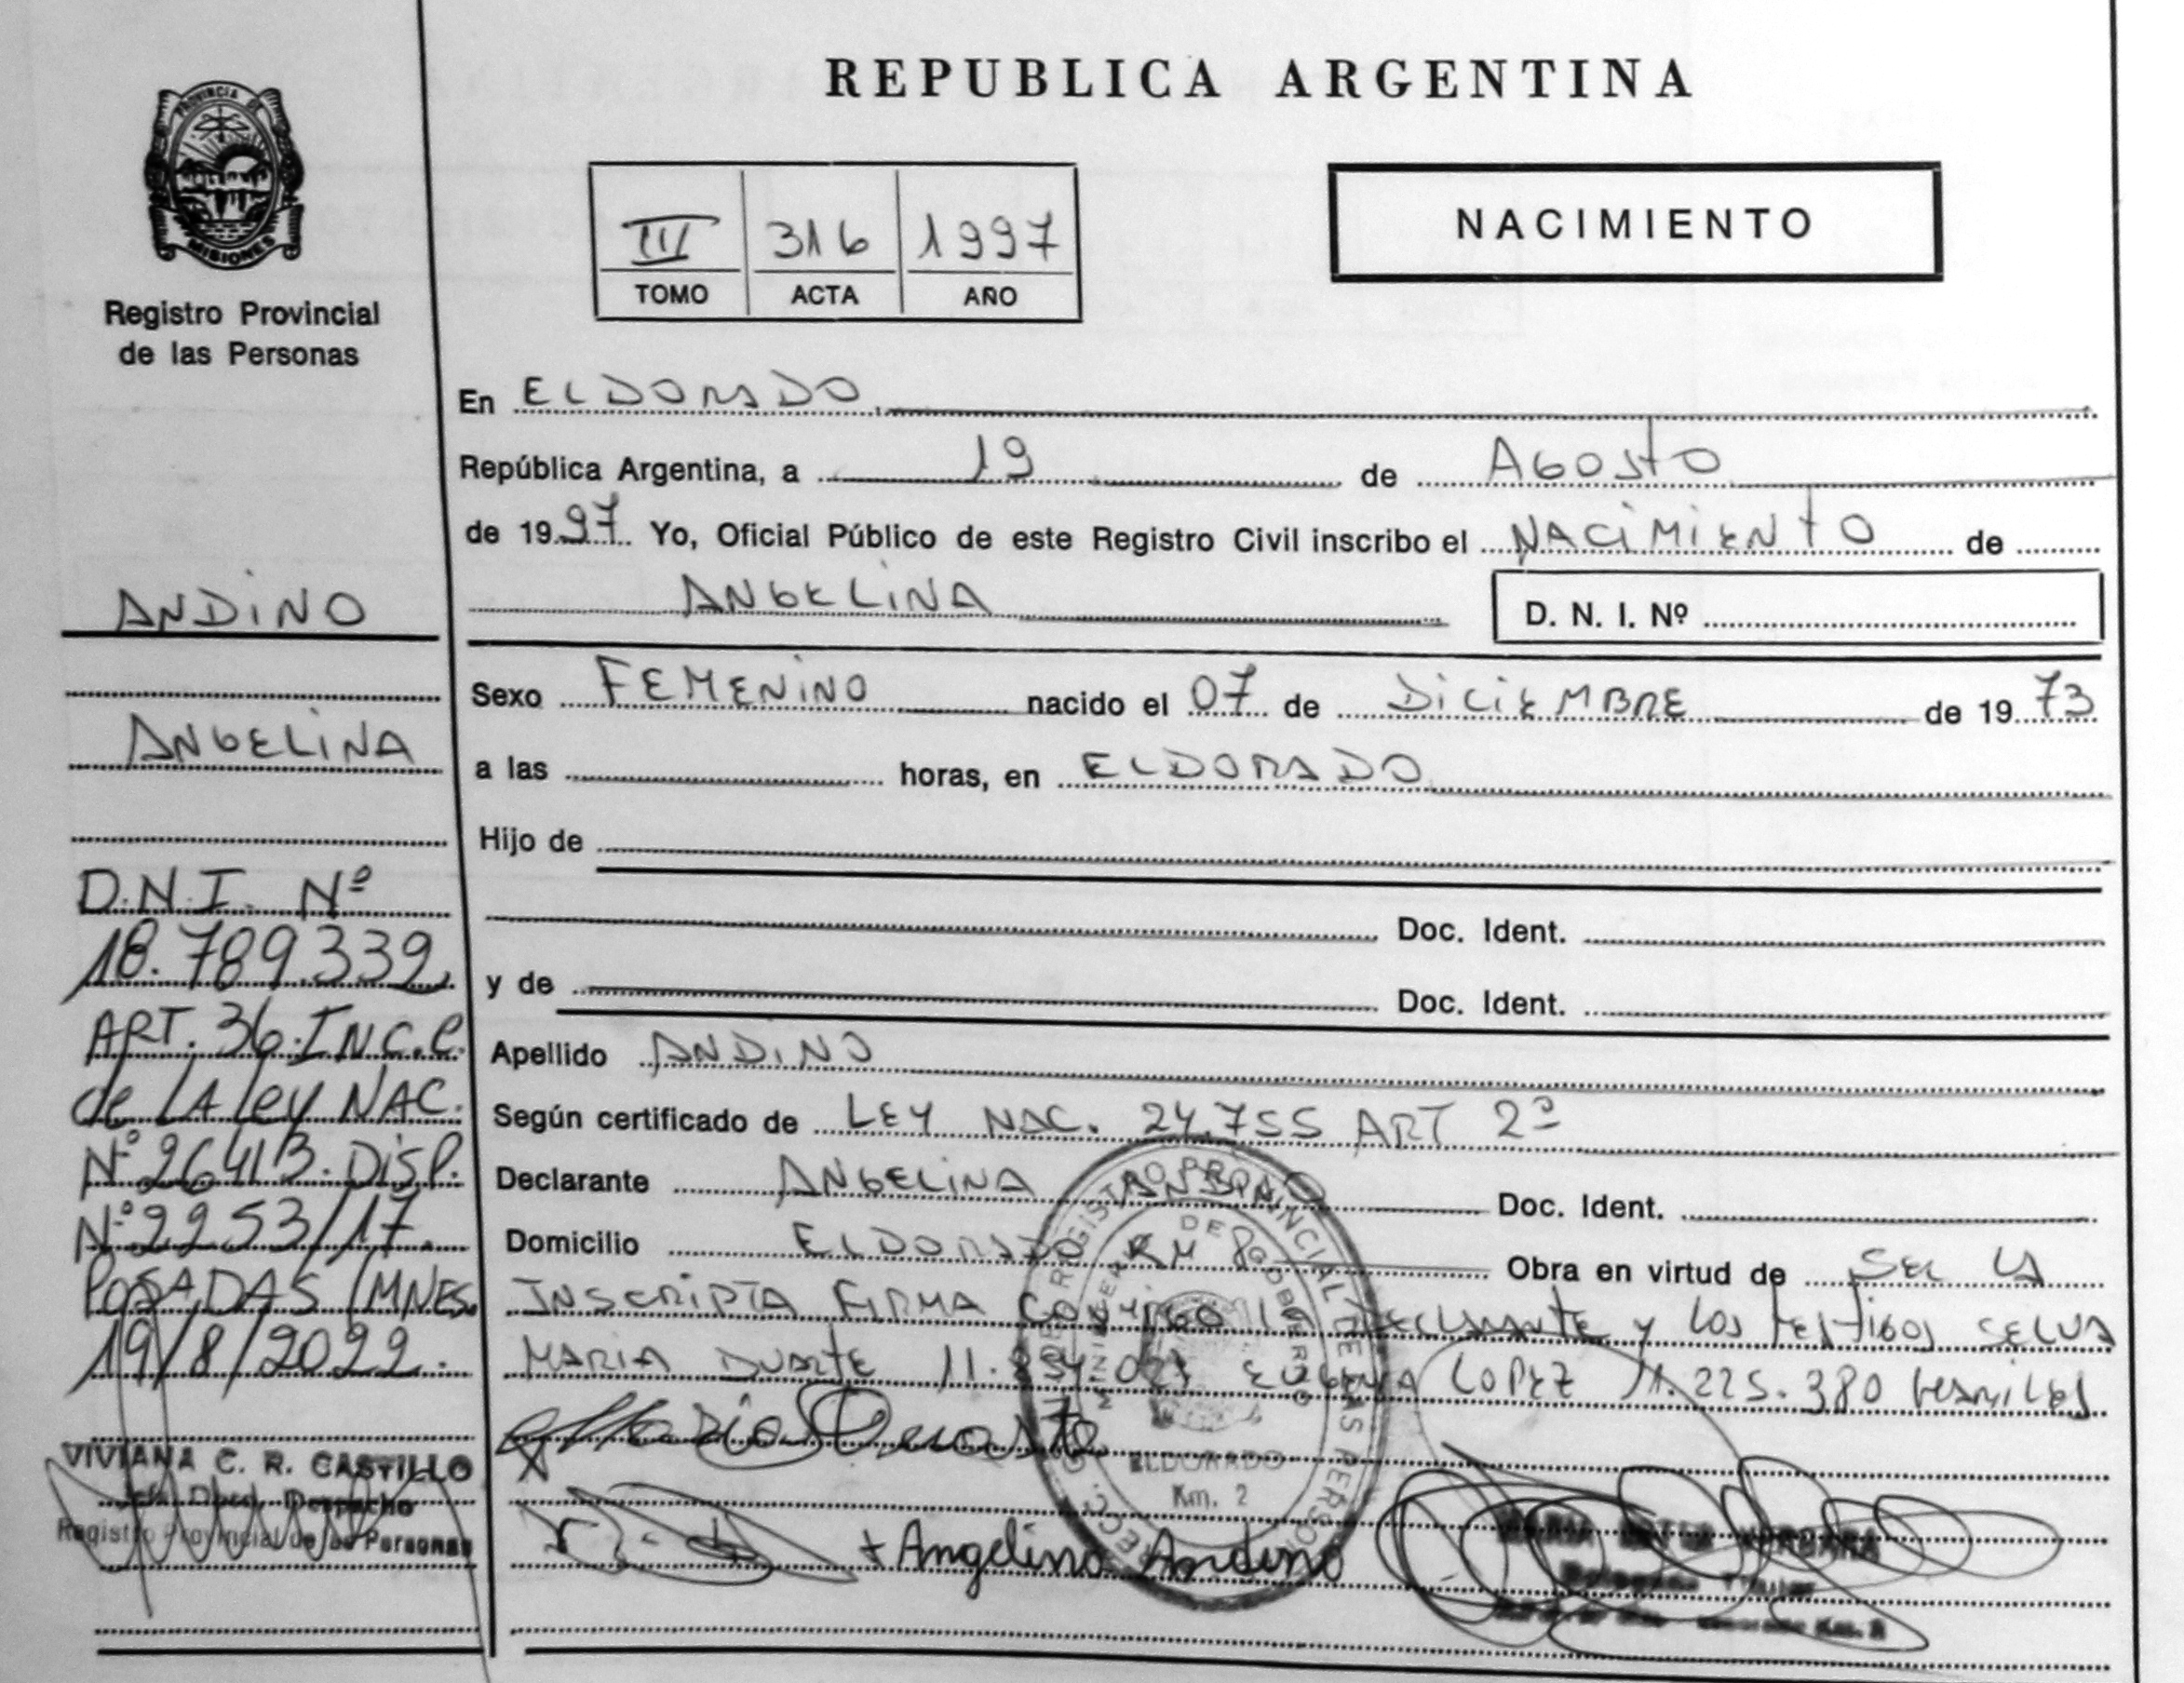 REPUBLICA ARGENTINA
PROVINCIA DE
MISIONES
Registro Provincial
de las Personas
III 316 1997
TOMO ACTA AÑO
NACIMIENTO
En ELDORADO
República Argentina, a 19 de AGOSTO
de 1997 Yo, Oficial Público de este Registro Civil inscribo el NACIMIENTO de
ANGELINA
D. N. I. Nº
Sexo FEMENINO nacido el 07 de DICIEMBRE de 1973
a las horas, en ELDORADO
Hijo de
Doc. Ident.
y de Doc. Ident.
Apellido ANDINO
Según certificado de LEY NAC. 24.755 ART 2º
Declarante ANGELINA ANDINO Doc. Ident.
Domicilio ELDORADO KM 8 Obra en virtud de SER LA
INSCRIPTA FIRMA CONMIGO LA DECLARANTE Y LOS TESTIGOS SELVA
MARIA DUARTE 11. EUGENIA LOPEZ 11.225.380
Maria Duarte
+ Angelina Andino
ANDINO
ANGELINA
D.N.I. Nº
18.789.339
ART. 36 INC.C.
de LA ley NAC.
Nº 26413. DISP.
Nº 2253/17.
POSADAS (MNES.
19/8/2022.
VIVIANA C. R. CASTILLO
Jefe Dpto. Despacho
Registro Provincial de las Personas
REGISTRO PROVINCIAL DE LAS PERSONAS
MINISTERIO DE GOBIERNO
ELDORADO
Km. 2